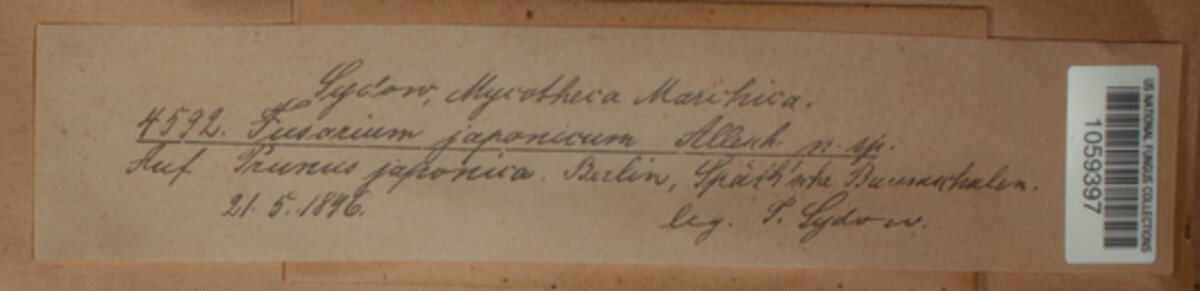 Sydow, Mycotheca Marchica.
4592. Fusarium japonicum Allesch n. sp.
Auf Prunus japonica. Berlin, Späth'sche Baumschulen.
21. 5. 1896.
leg. P. Sydow.
US NATIONAL FUNGUS COLLECTIONS
1059397